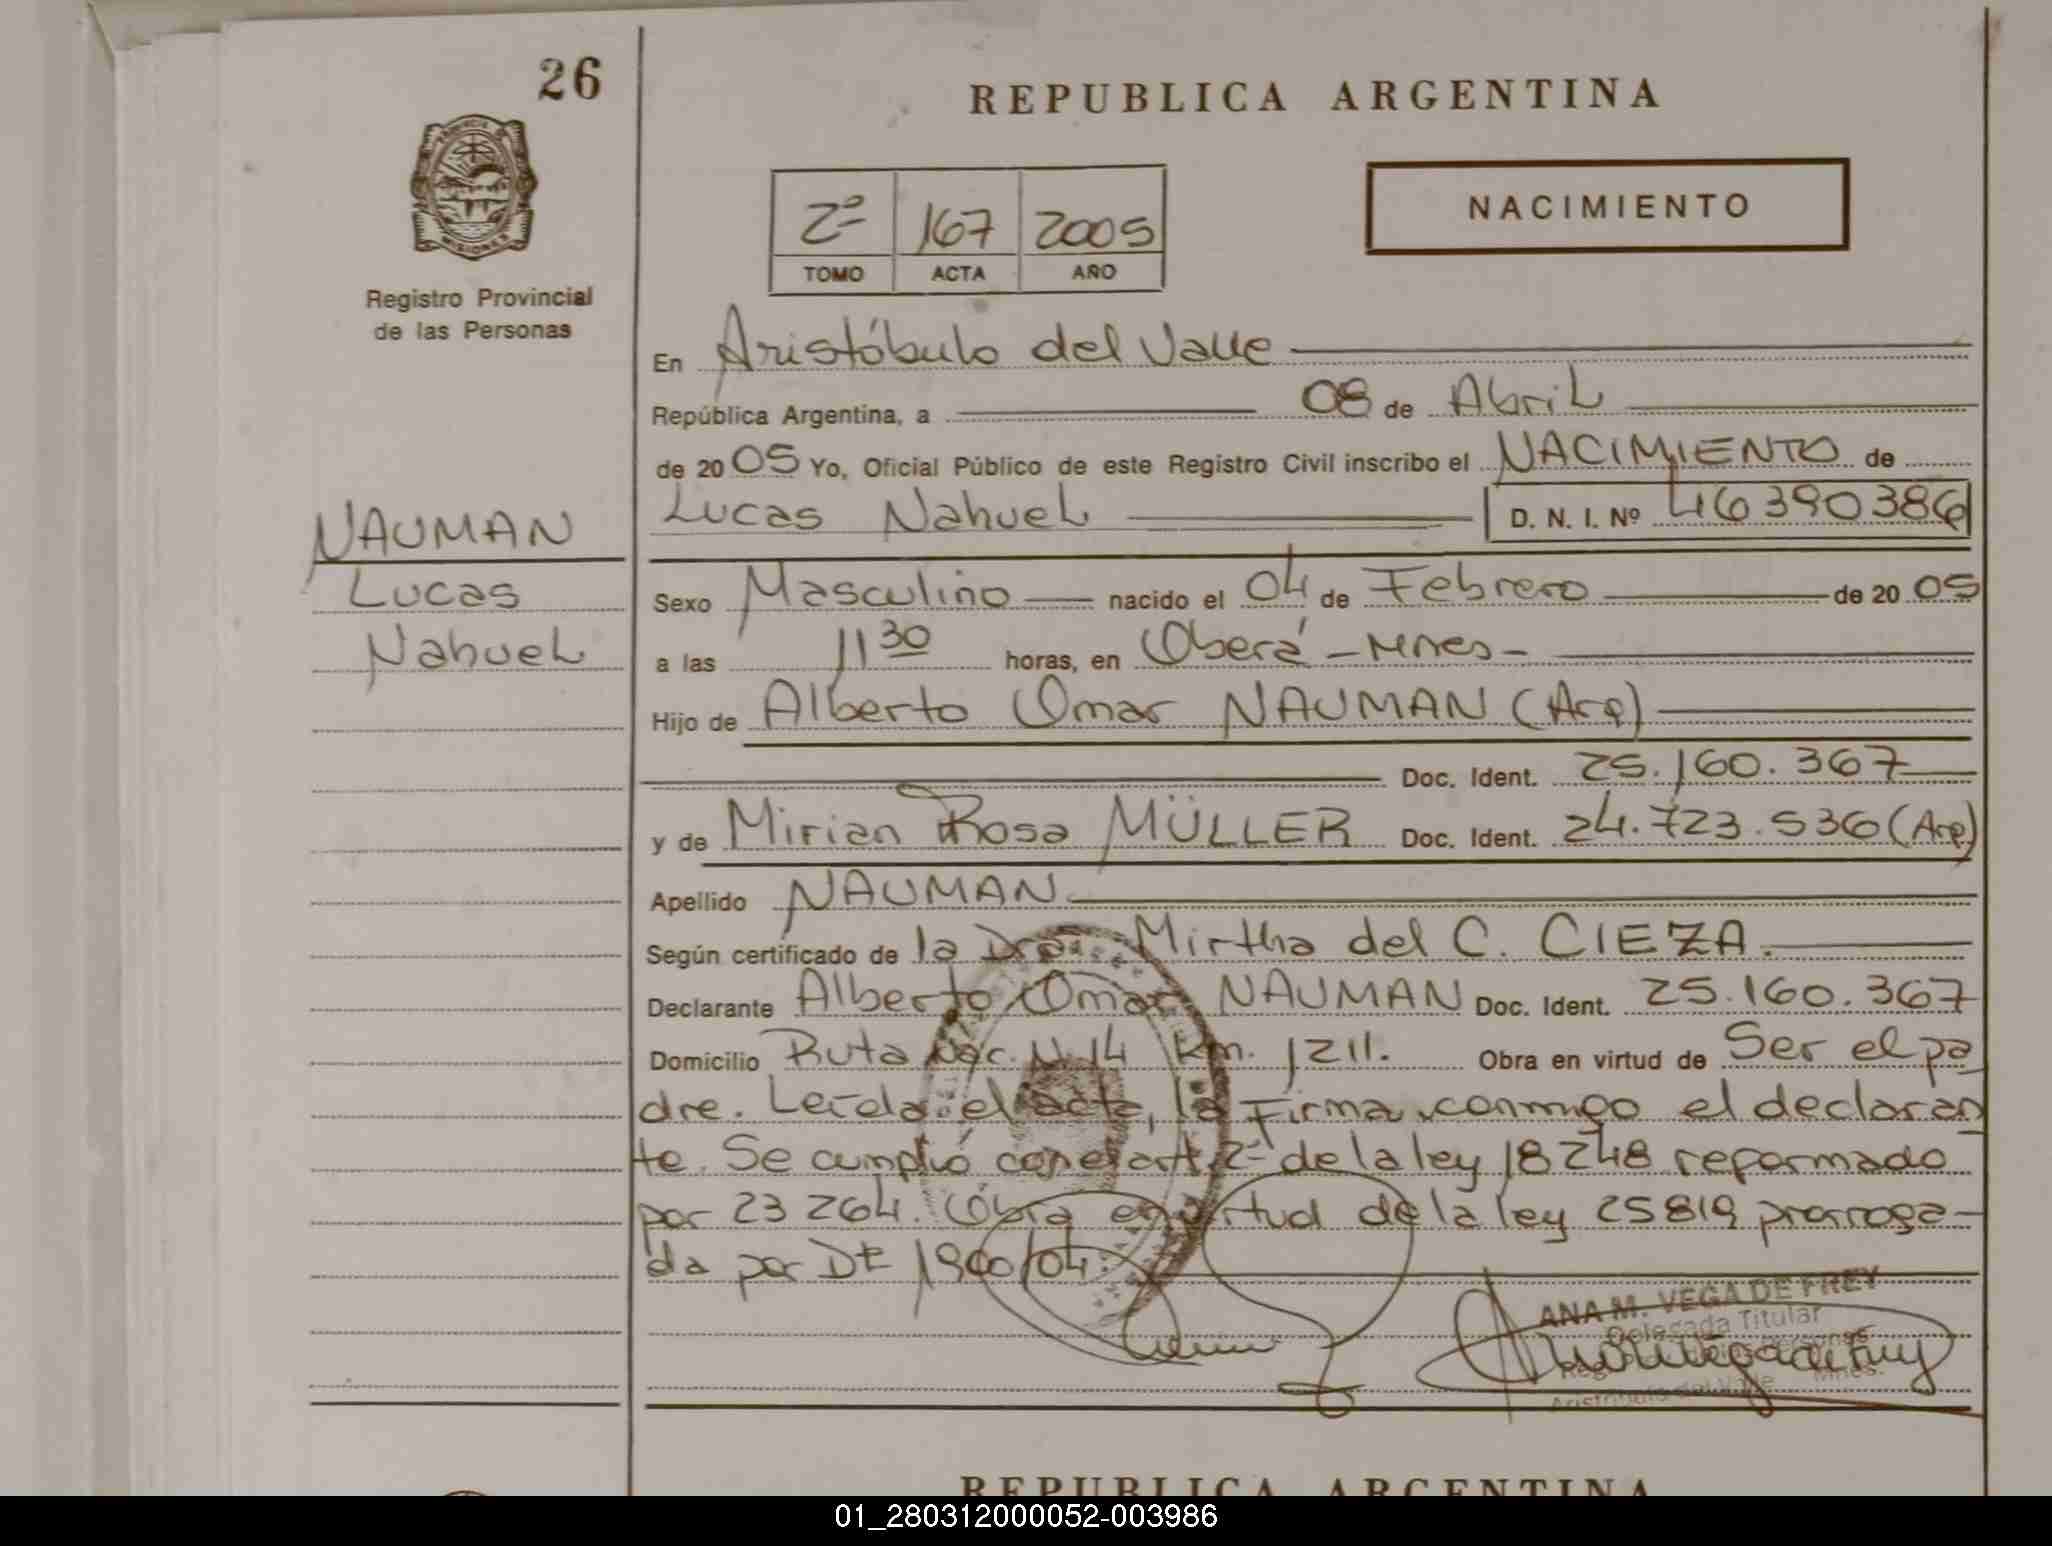 26
REPUBLICA ARGENTINA
PROVINCIA DE
MISIONES
Registro Provincial
de las Personas
2º 167 2005
TOMO ACTA AÑO
NACIMIENTO
En Aristóbulo del Valle
República Argentina, a 08 de Abril
de 2005 Yo, Oficial Público de este Registro Civil inscribo el NACIMIENTO de
Lucas Nahuel D. N. I. Nº 46390386
NAUMAN
Lucas
Nahuel
Sexo Masculino nacido el 04 de Febrero de 2005
a las 11 30 horas, en Oberá - Mnes -
Hijo de Alberto Omar NAUMAN (Arg)
Doc. Ident. 25.160.367
y de Mirian Rosa MÜLLER Doc. Ident. 24.723.536 (Arg)
Apellido NAUMAN
Según certificado de la Dra. Mirtha del C. CIEZA.
Declarante Alberto Omar NAUMAN Doc. Ident. 25.160.367
Domicilio Ruta Nac. N 14 Km. 1211. Obra en virtud de Ser el pa
dre. Leída el acta, la firma conmigo el declaran
te. Se cumplió con el art 2º de la ley 18248 reformado
por 23264. Obra en virtud de la ley 25819 prorroga-
da por Dt 1900/04.
ANA M. VEGA DE FREY
Delegada Titular
Aristóbulo del Valle Mnes.
REPUBLICA ARGENTINA
01_280312000052-003986